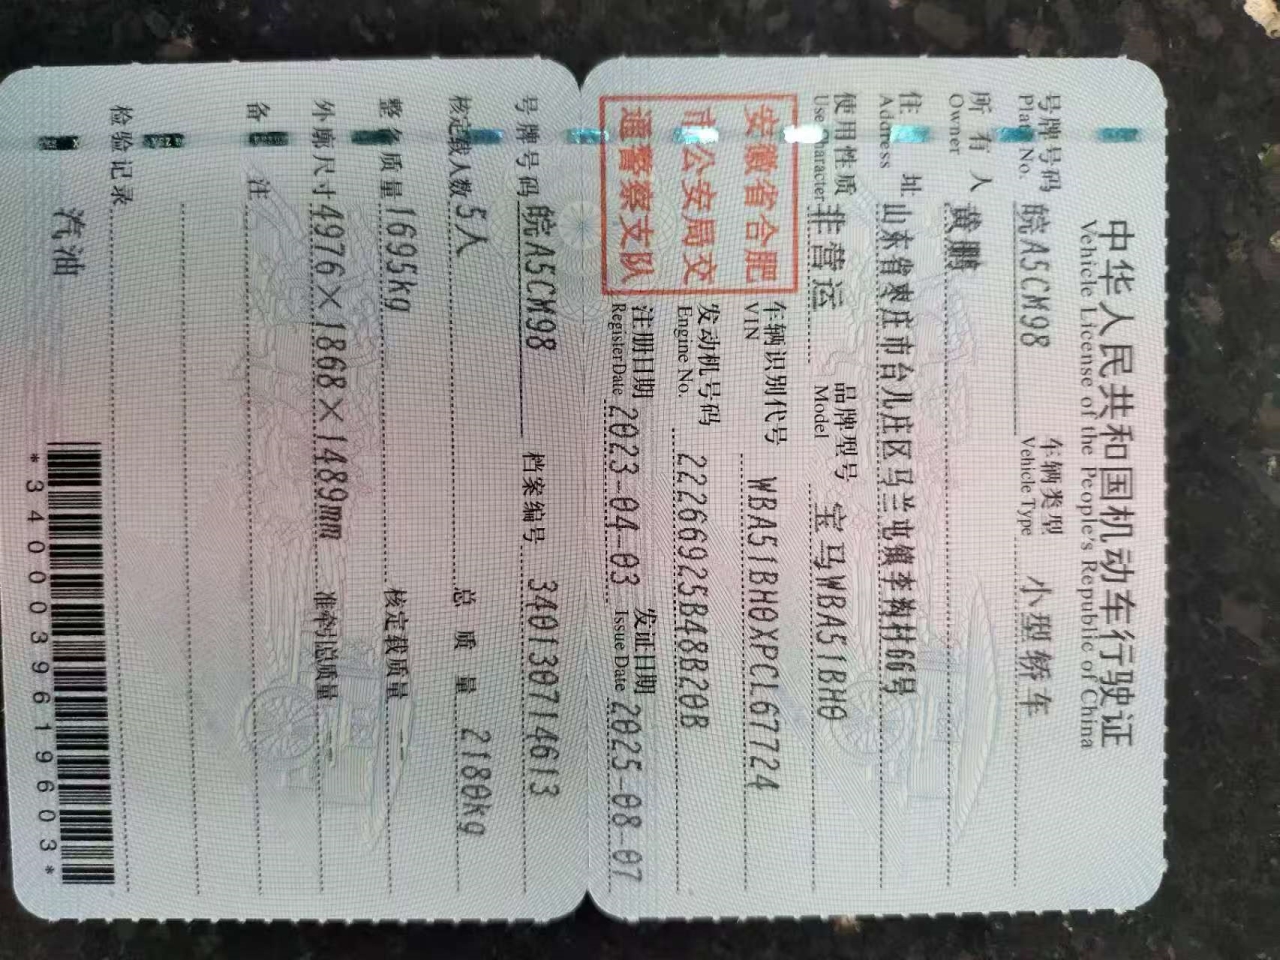 中华人民共和国机动车行驶证
Vehicle License of the People's Republic of China
号牌号码 皖A5CM98 车辆类型 小型轿车
Plate No. Vehicle Type
所有人 黄鹏
Owner
住址 山东省枣庄市台儿庄区马兰屯镇李村66号
Address
使用性质 非营运 品牌型号 宝马WBA51BH0
Use Character Model
安徽省合肥
市公安局交
通警察支队
车辆识别代号 WBA51BH0XPCL67724
VIN
发动机号码 22266925B48B20B
Engine No.
注册日期 2023-04-03 发证日期 2025-08-07
Register Date Issue Date
号牌号码 皖A5CM98 档案编号 340130714613
核定载人数 5人 总质量 2180kg
整备质量 1695kg 核定载质量 --
外廓尺寸 4976×1868×1489mm 准牵引总质量 --
备注
检验记录
汽油
*3400039619603*